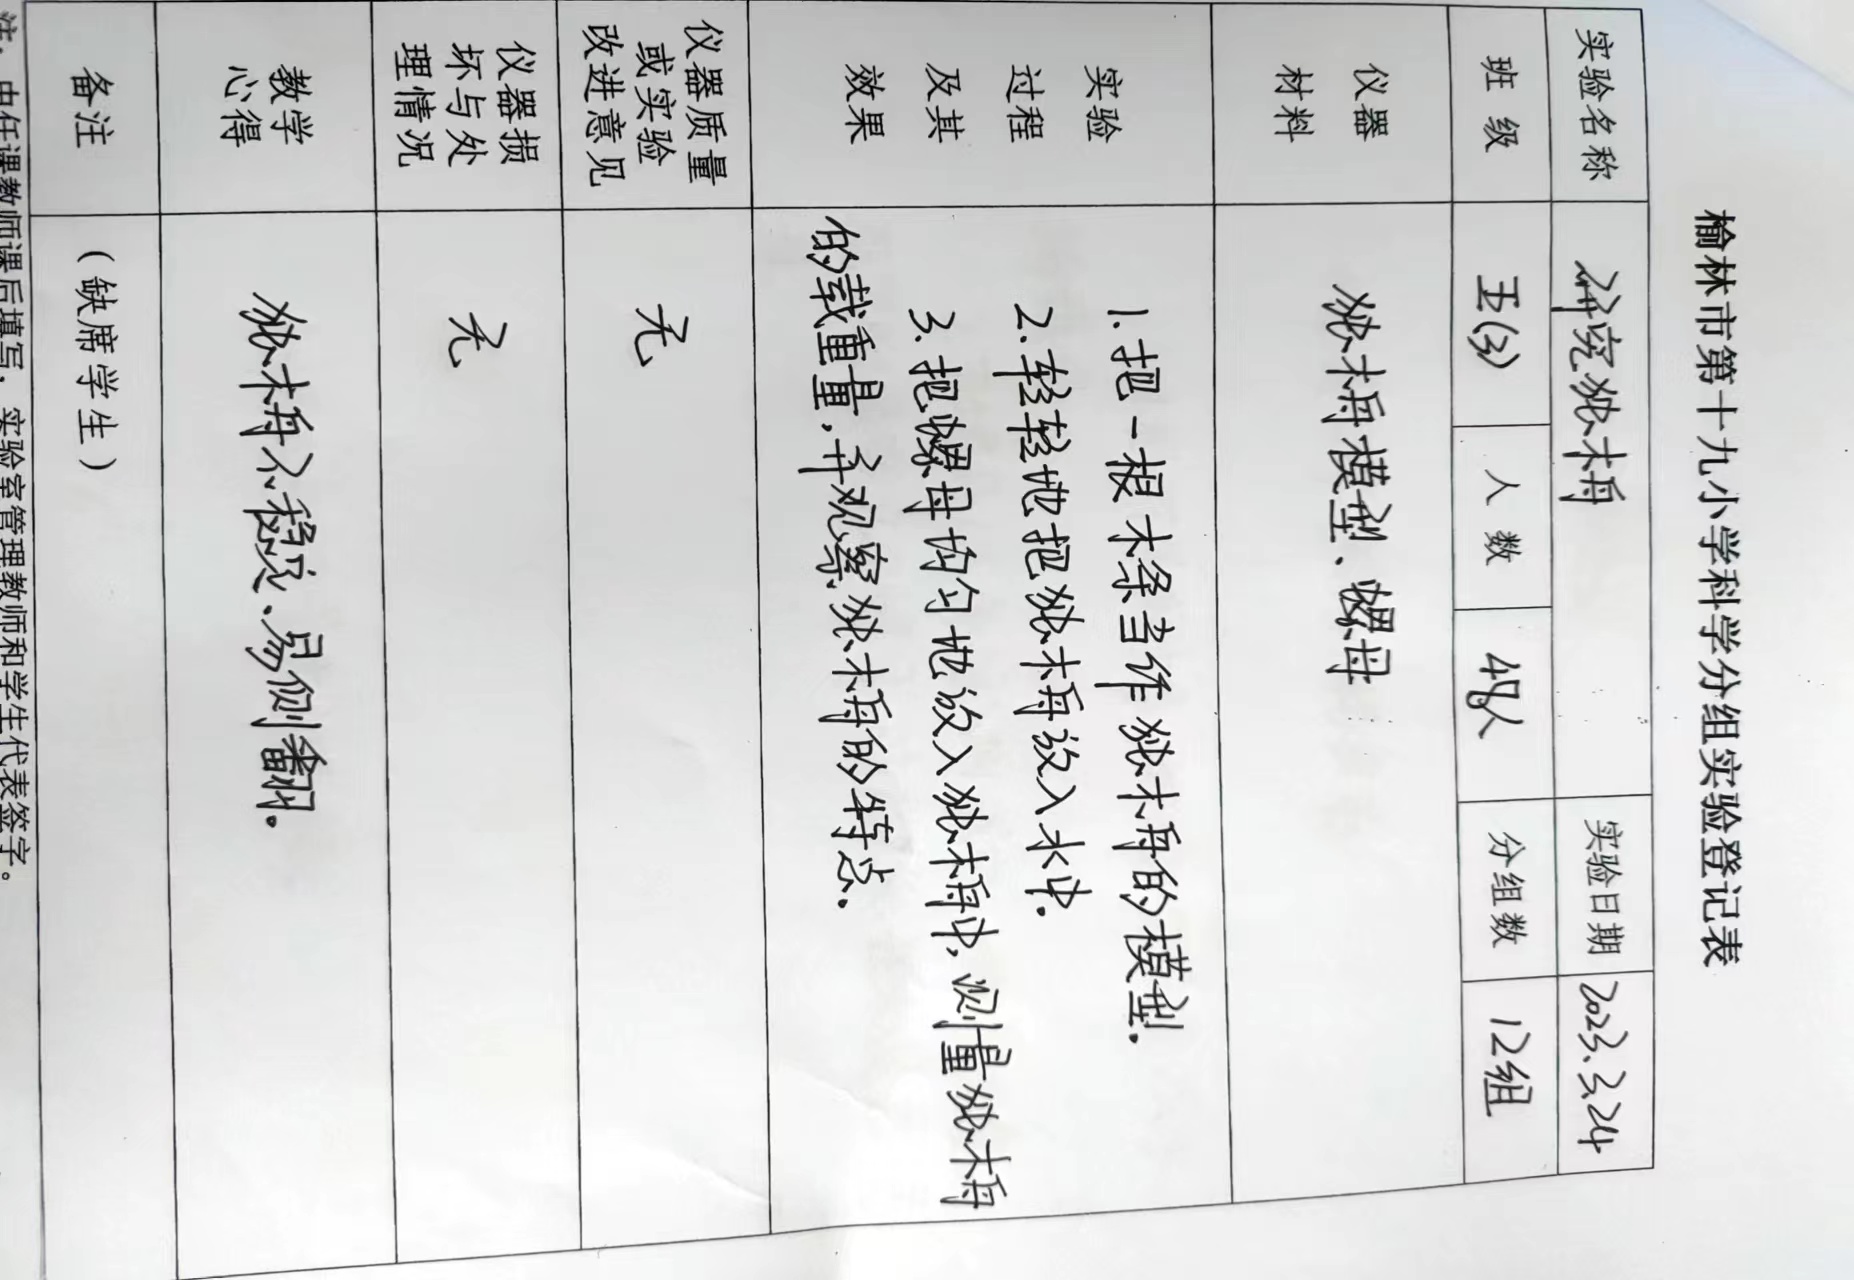 榆林市第十九小学科学分组实验登记表
实验名称 研究独木舟 实验日期 2023.3.24
班级 五(3) 人数 48人 分组数 12组
仪器材料 独木舟模型、螺母
实验过程及其效果
1.把一根木条当作独木舟的模型.
2.轻轻地把独木舟放入水中.
3.把螺母均匀地放入独木舟中,测量独木舟
的载重量,并观察独木舟的特点.
仪器质量或实验改进意见 无
仪器损坏与处理情况 无
教学心得 独木舟不稳定、易侧翻.
备注 (缺席学生)
注:由任课教师课后填写,实验室管理教师和学生代表签字。